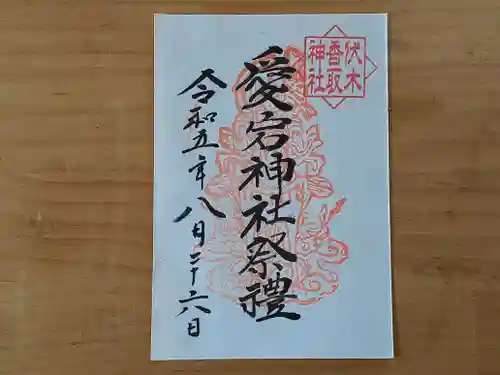 伏木
香取
神社
愛宕神社祭禮
令和五年八月二十六日